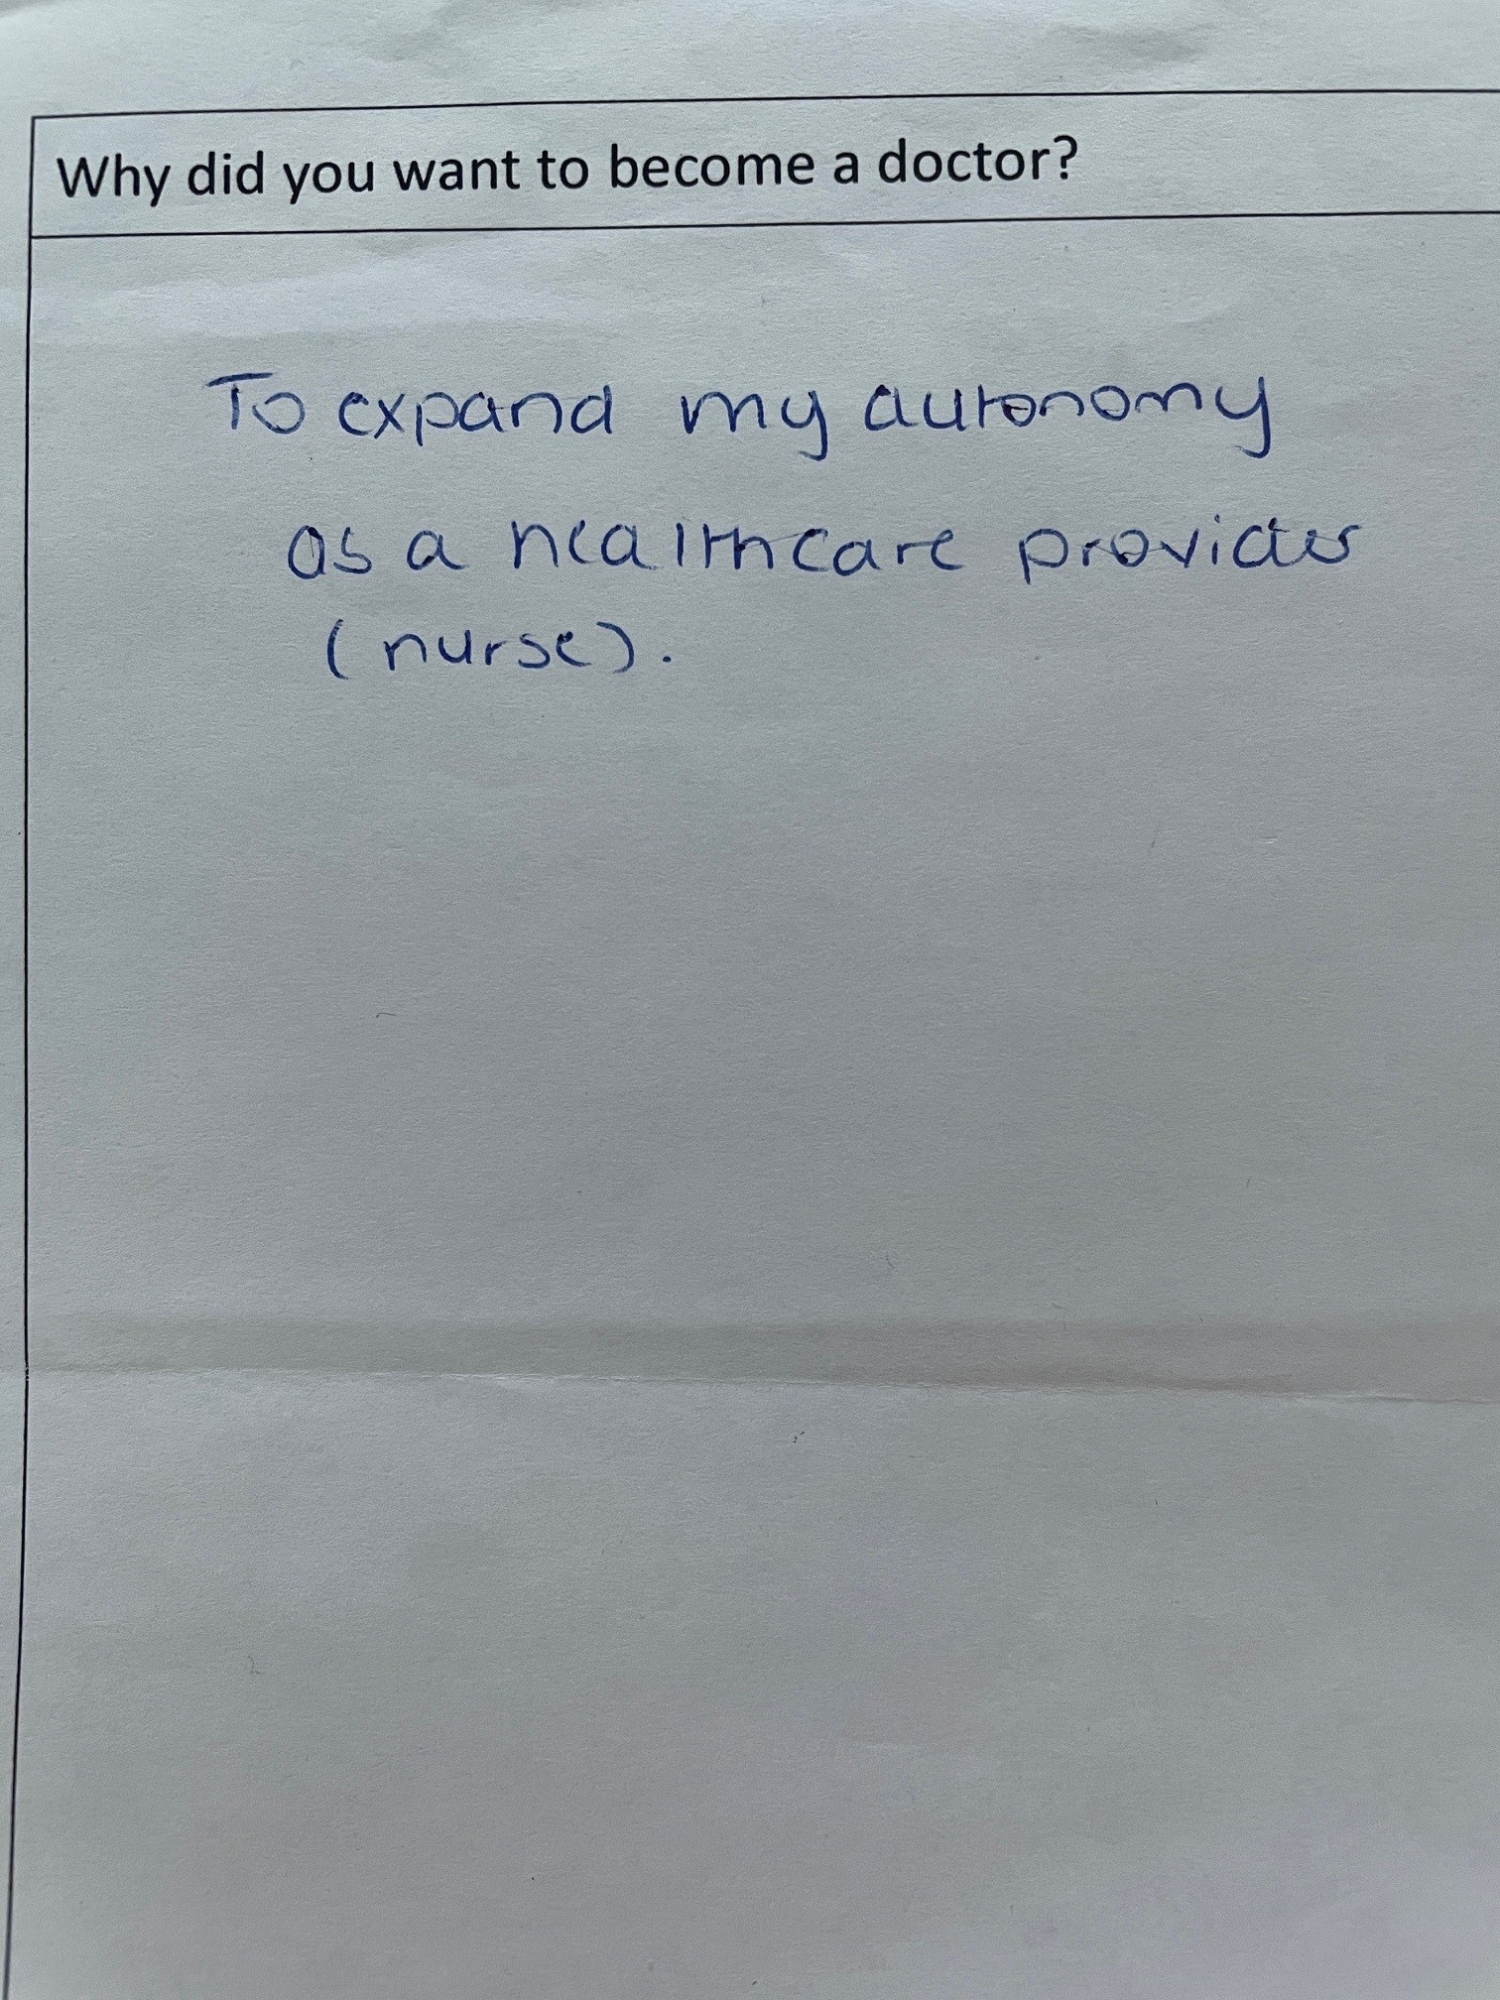 Why did you want to become a doctor?
To expand my autonomy
as a healthcare provider
(nurse).